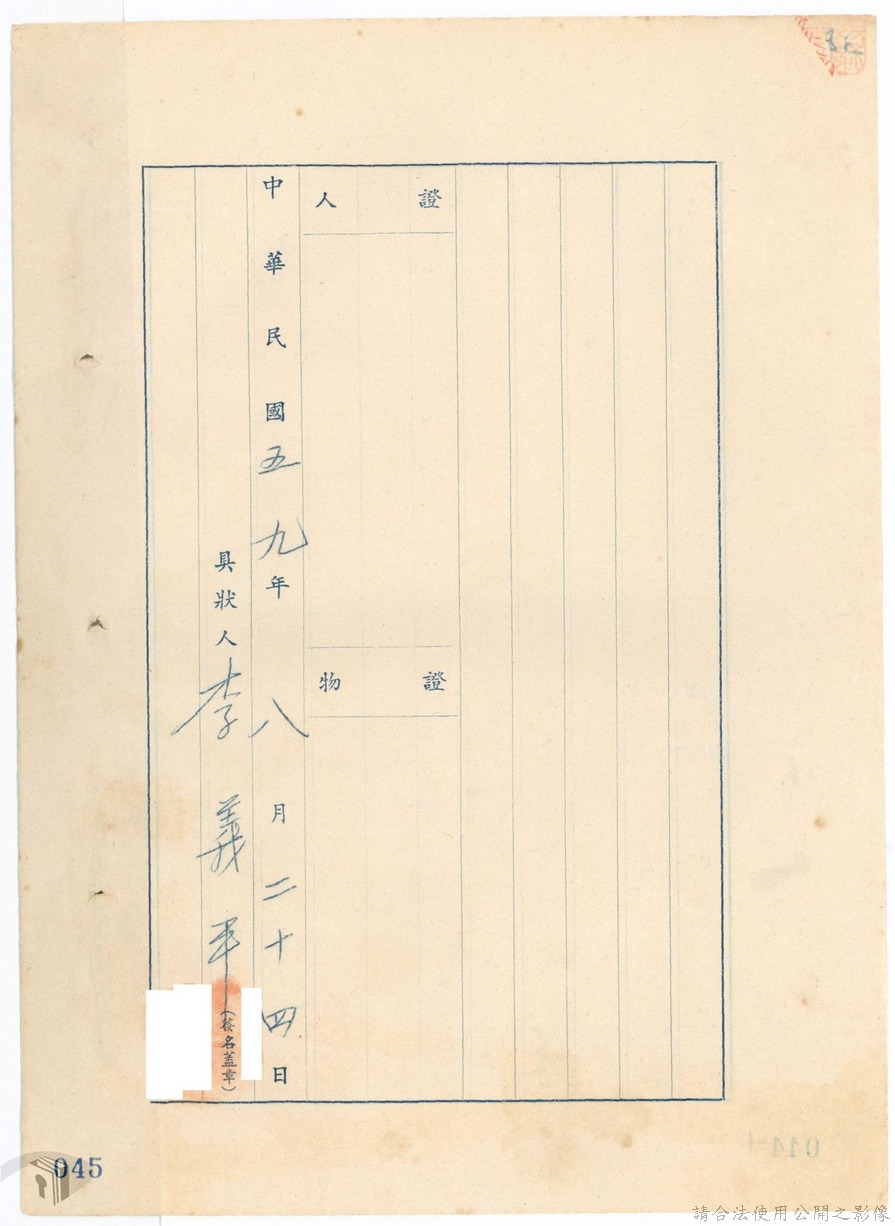 證人
證物
中華民國五九年八月二十四日
具狀人李義平(簽名蓋章)
045
044-1
請合法使用公開之影像